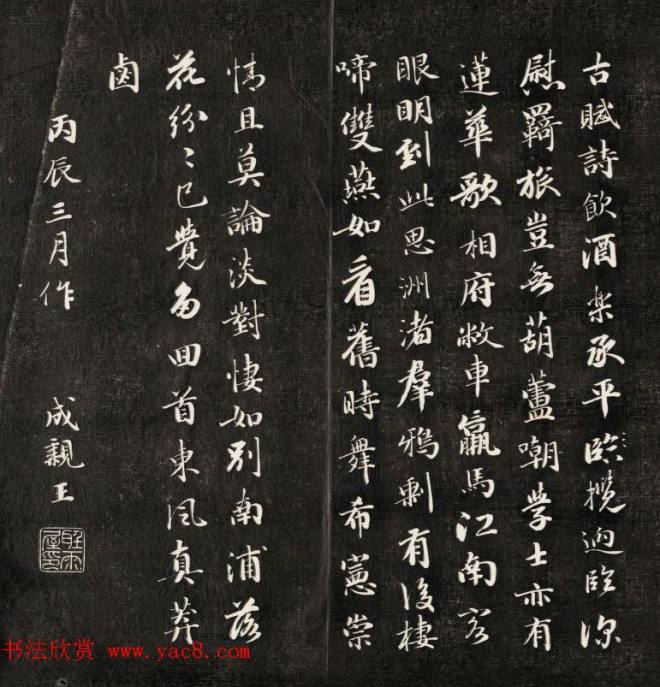 古賦詩飲酒樂承平臨攬迥臨深
慰羇旅豈無葫蘆嘲學士亦有
蓮華歌相府敝車羸馬江南客
眼明到此思洲渚羣鴉剩有後棲
啼雙燕如看舊時舞希憲崇
情且莫論淡對悽如别南浦落
花紛〻已覺多回首東風真莽
鹵
丙辰三月作
成親王
书法欣赏 www.yac8.com